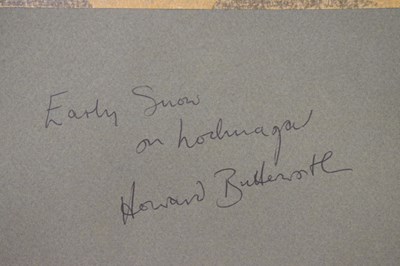 Early Snow
on Lochnagar
Howard Butterworth